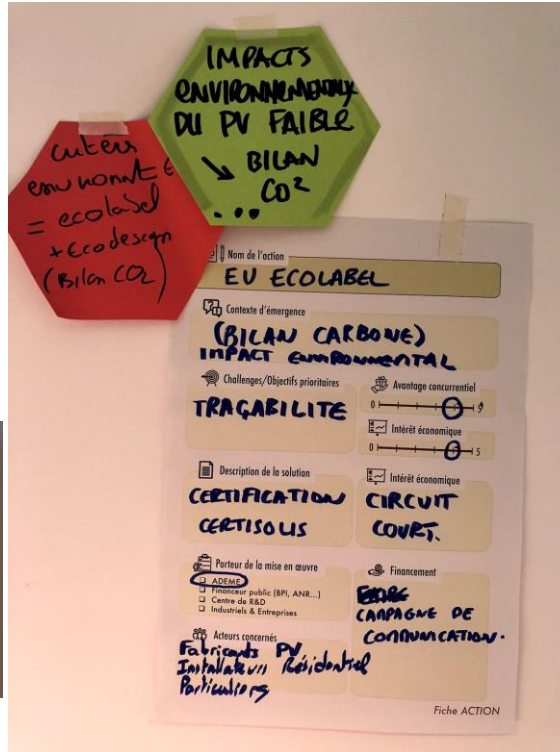 IMPACTS
ENVIRONNEMENTAUX
DU PV FAIBLE
↘ BILAN
CO²
...
= ecolabel
+ Ecodesign
(Bilan CO2)
Nom de l'action
EU ECOLABEL
Contexte d'émergence
(BILAN CARBONE)
IMPACT ENVIRONNEMENTAL
Challenges/Objectifs prioritaires
TRAÇABILITE
Avantage concurrentiel
0
Intérêt économique
0 5
Description de la solution
CERTIFICATION
CERTISOLIS
Intérêt économique
CIRCUIT
COURT.
Porteur de la mise en œuvre
ADEME
Financeur public (BPI, ANR...)
Centre de R&D
Industriels & Entreprises
Financement
CAMPAGNE DE
COMMUNICATION.
Acteurs concernés
Fabricants PV
Installateurs Résidentiel
Particuliers
Fiche ACTION